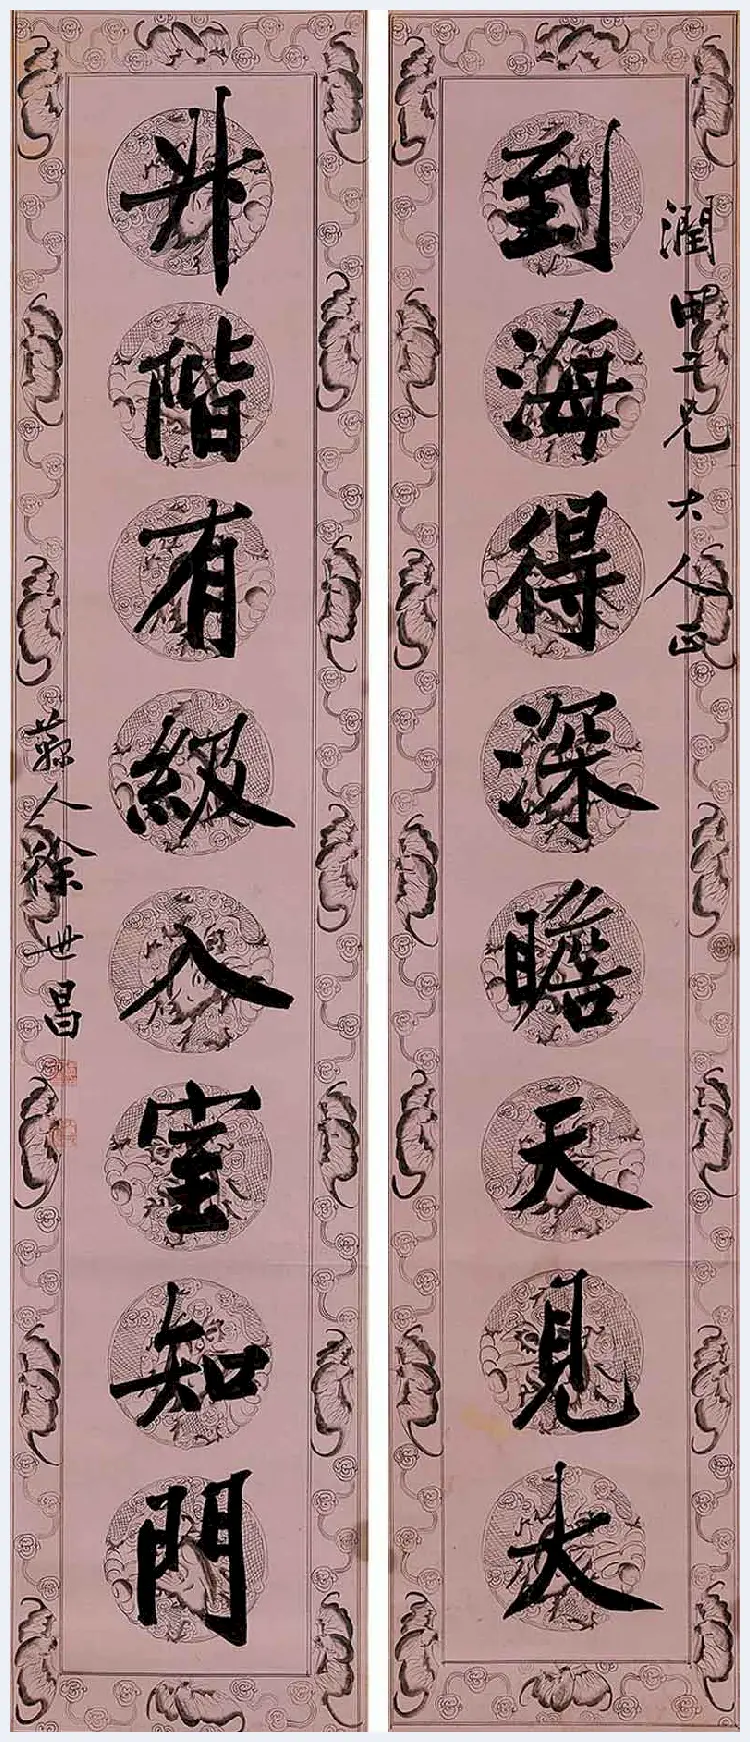 潤甫二兄大人正
到海得深瞻天見大
升階有級入室知門
蘜人徐世昌